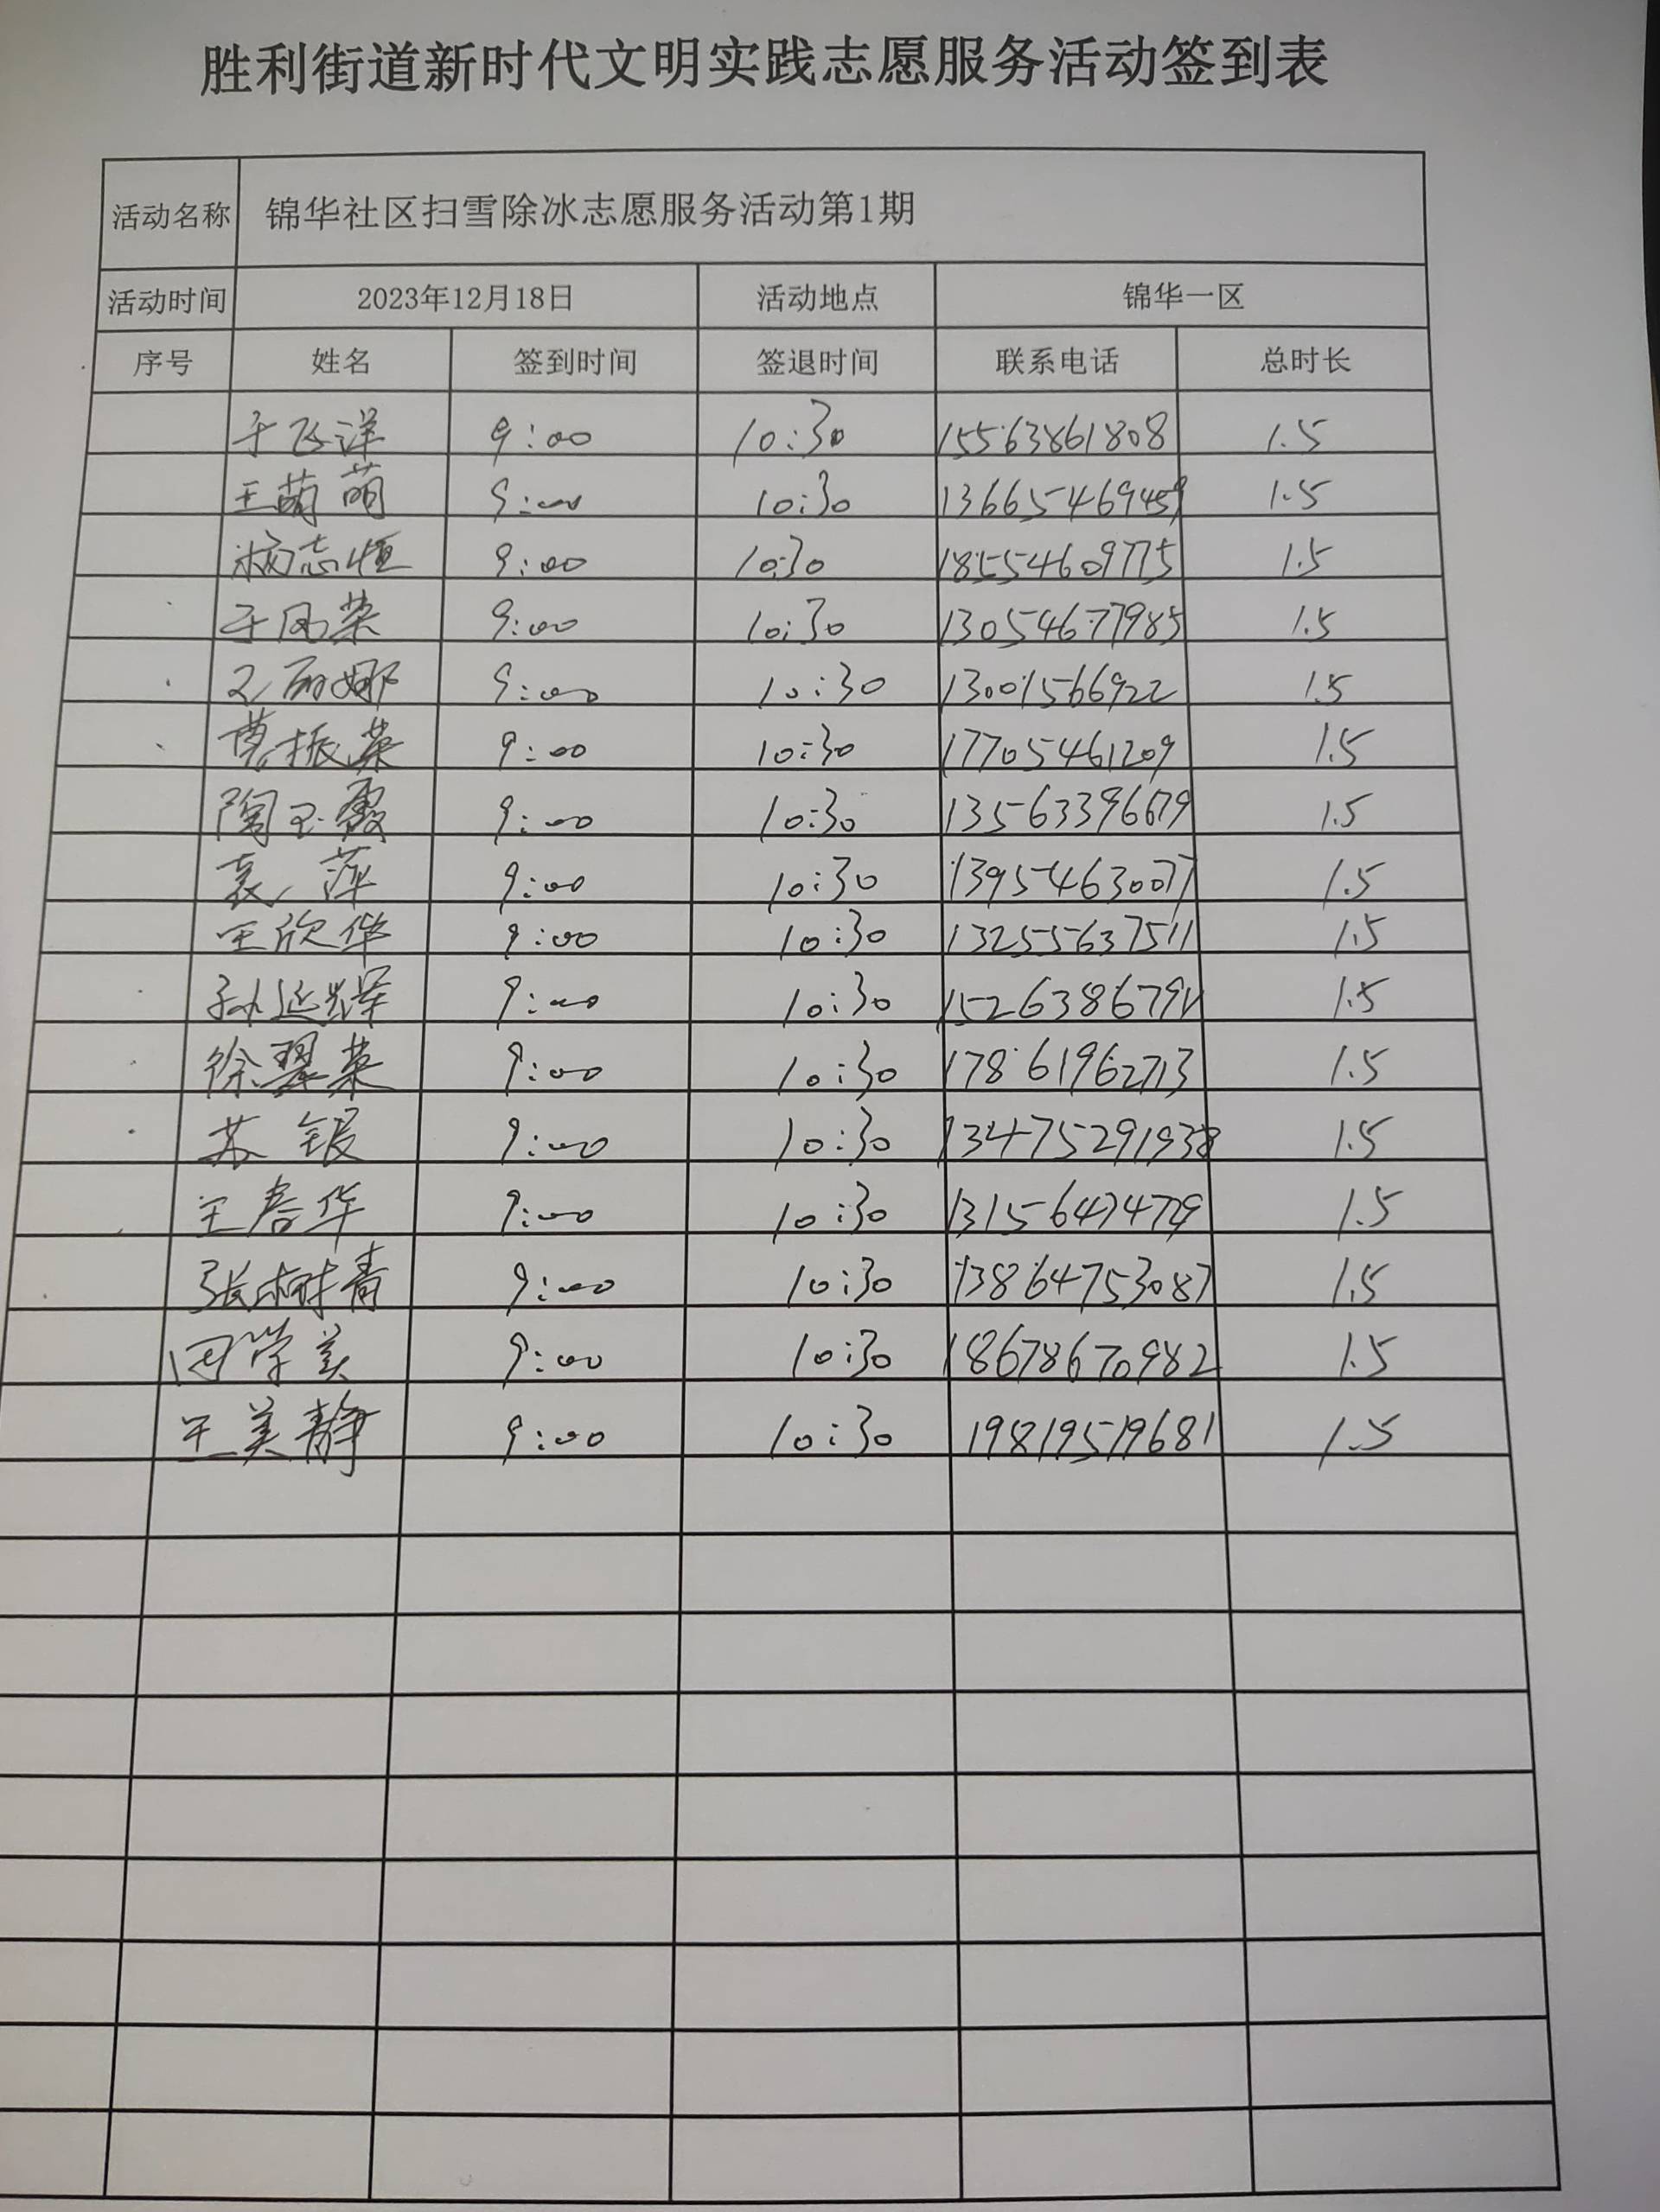 胜利街道新时代文明实践志愿服务活动签到表
活动名称 锦华社区扫雪除冰志愿服务活动第1期
活动时间 2023年12月18日 活动地点 锦华一区
序号 姓名 签到时间 签退时间 联系电话 总时长
于飞洋 9:00 10:30 15563861808 1.5
王萌萌 9:00 10:30 13665469459 1.5
志恒 9:00 10:30 18554609775 1.5
于凤荣 9:00 10:30 13054677985 1.5
丽娜 9:00 10:30 13001566922 1.5
振英 9:00 10:30 17705461209 1.5
陶玉霞 9:00 10:30 13563396679 1.5
袁萍 9:00 10:30 13954630077 1.5
王欣华 9:00 10:30 13255637511 1.5
孙延辉 9:00 10:30 1.5
徐翠英 9:00 10:30 17861962713 1.5
苏银 9:00 10:30 1.5
王春华 9:00 10:30 13156474729 1.5
张树青 9:00 10:30 13864753087 1.5
田学美 9:00 10:30 18678670982 1.5
王美静 9:00 10:30 19819519681 1.5